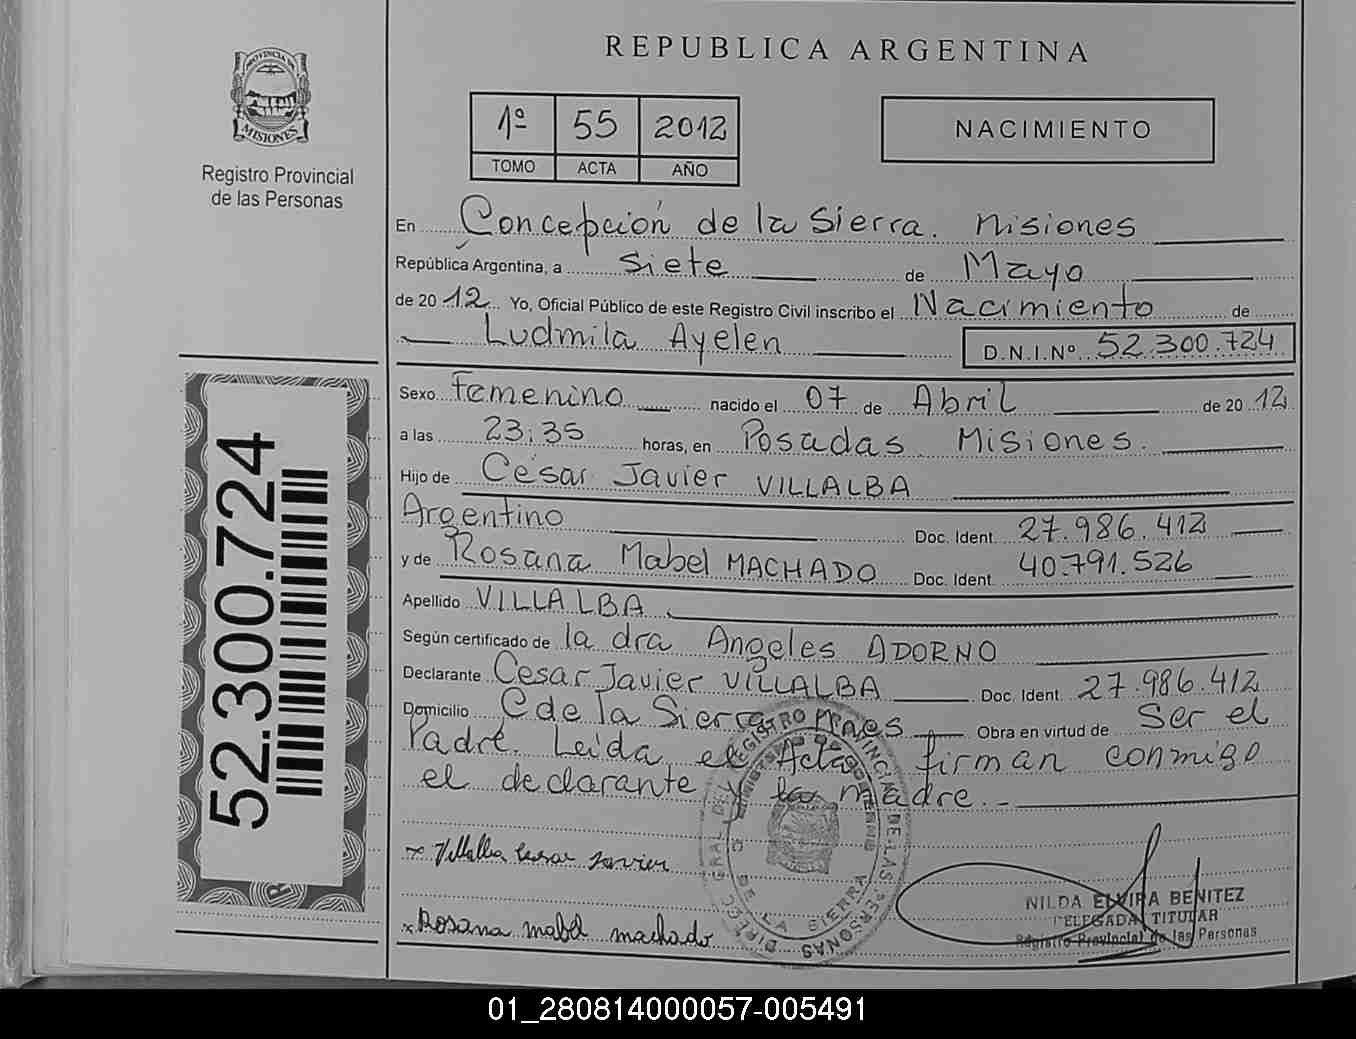 PROVINCIA DE
MISIONES
Registro Provincial
de las Personas
52.300.724
REPUBLICA ARGENTINA
1º 55 2012
TOMO ACTA AÑO
NACIMIENTO
En Concepción de la Sierra. Misiones
República Argentina, a Siete de Mayo
de 2012 Yo, Oficial Público de este Registro Civil inscribo el Nacimiento de
Ludmila Ayelen D.N.I.Nº 52.300.724
Sexo Femenino nacido el 07 de Abril de 2012
a las 23:35 horas, en Posadas Misiones.
Hijo de César Javier VILLALBA
Argentino Doc. Ident. 27.986.412
y de Rosana Mabel MACHADO Doc. Ident. 40.791.526
Apellido VILLALBA
Según certificado de la dra Angeles ADORNO
Declarante Cesar Javier VILLALBA Doc. Ident. 27.986.412
Domicilio C de la Sierra Mnes Obra en virtud de Ser el
Padre. Leida el Acta firman conmigo
el declarante y la madre.-
x Villalba Cesar Javier
x Rosana mabel machado
DIREC. GRAL. DEL REGISTRO PROVINCIAL DE LAS PERSONAS
DE LA SIERRA
NILDA ELVIRA BENITEZ
DELEGADA TITULAR
Registro Provincial de las Personas
01_280814000057-005491